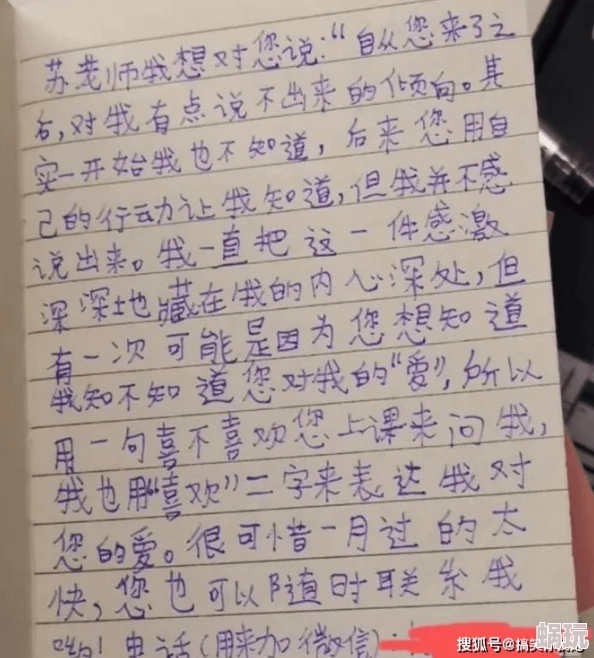 苏荒师我想对您说:“自从您来了之
后,对我有点说不出来的倾向。其
实一开始我也不知道,后来您用自
己的行动让我知道,但我并不感
说出来。我一直把这一件感激
深深土也藏在我的内心深处,但
有一次可能是因为您想知道
我知不知道您对我的“爱”,所以
用一句喜不喜欢您上课来问我,
我也用“喜欢”二字来表达我对
您的爱。很可惜一月过的太
快,您也可以随时联系我
哟!电话(用来加微信):
搜狐号@搞笑
蜗玩